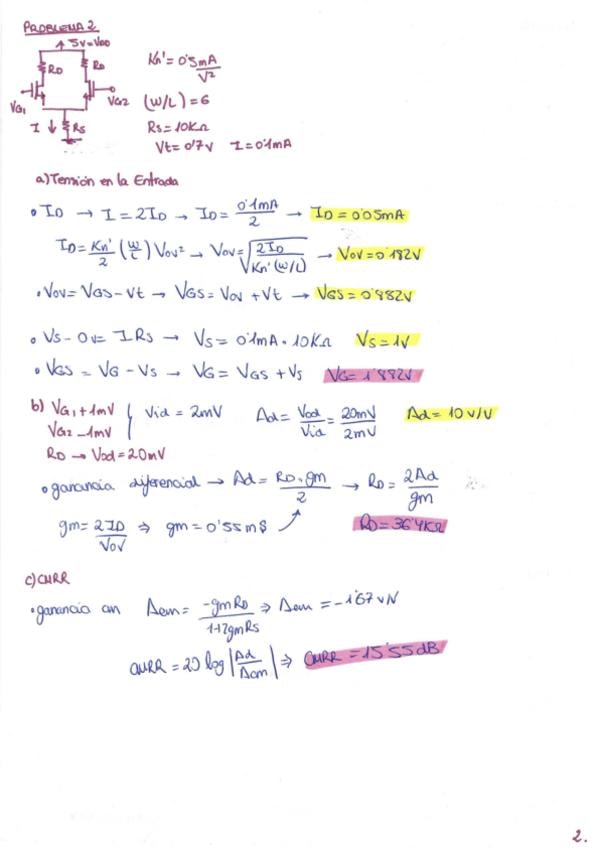 PROBLEMA 2
5V=VDD
RD
RD
VG1
VG2
I
RS
Kn' = 0'5mA/V²
(W/L) = 6
RS = 10KΩ
Vt = 0'7V I = 0'1mA
a) Tensión en la Entrada
• ID → I = 2ID → ID = 0'1mA/2 → ID = 0'05mA
ID = Kn'/2 (W/L) Vov² → Vov = √(2ID/Kn'(W/L)) → Vov = 0'182V
• Vov = VGS - Vt → VGS = Vov + Vt → VGS = 0'882V
• VS - 0v = I RS → VS = 0'1mA · 10KΩ VS = 1V
• VGS = VG - VS → VG = VGS + VS VG = 1'882V
b) VG1 + 1mV
VG2 - 1mV
Vid = 2mV Ad = Vod/Vid = 20mV/2mV Ad = 10 V/V
RD → Vod = 20mV
• ganancia diferencial → Ad = RD·gm/2 → RD = 2Ad/gm
gm = 2ID/Vov ⇒ gm = 0'55mS RD = 36'4KΩ
c) CMRR
• ganancia cm Acm = -gmRD/1+2gmRS ⇒ Acm = -1'67 V/V
CMRR = 20 log |Ad/Acm| ⇒ CMRR = 15'55 dB
2.